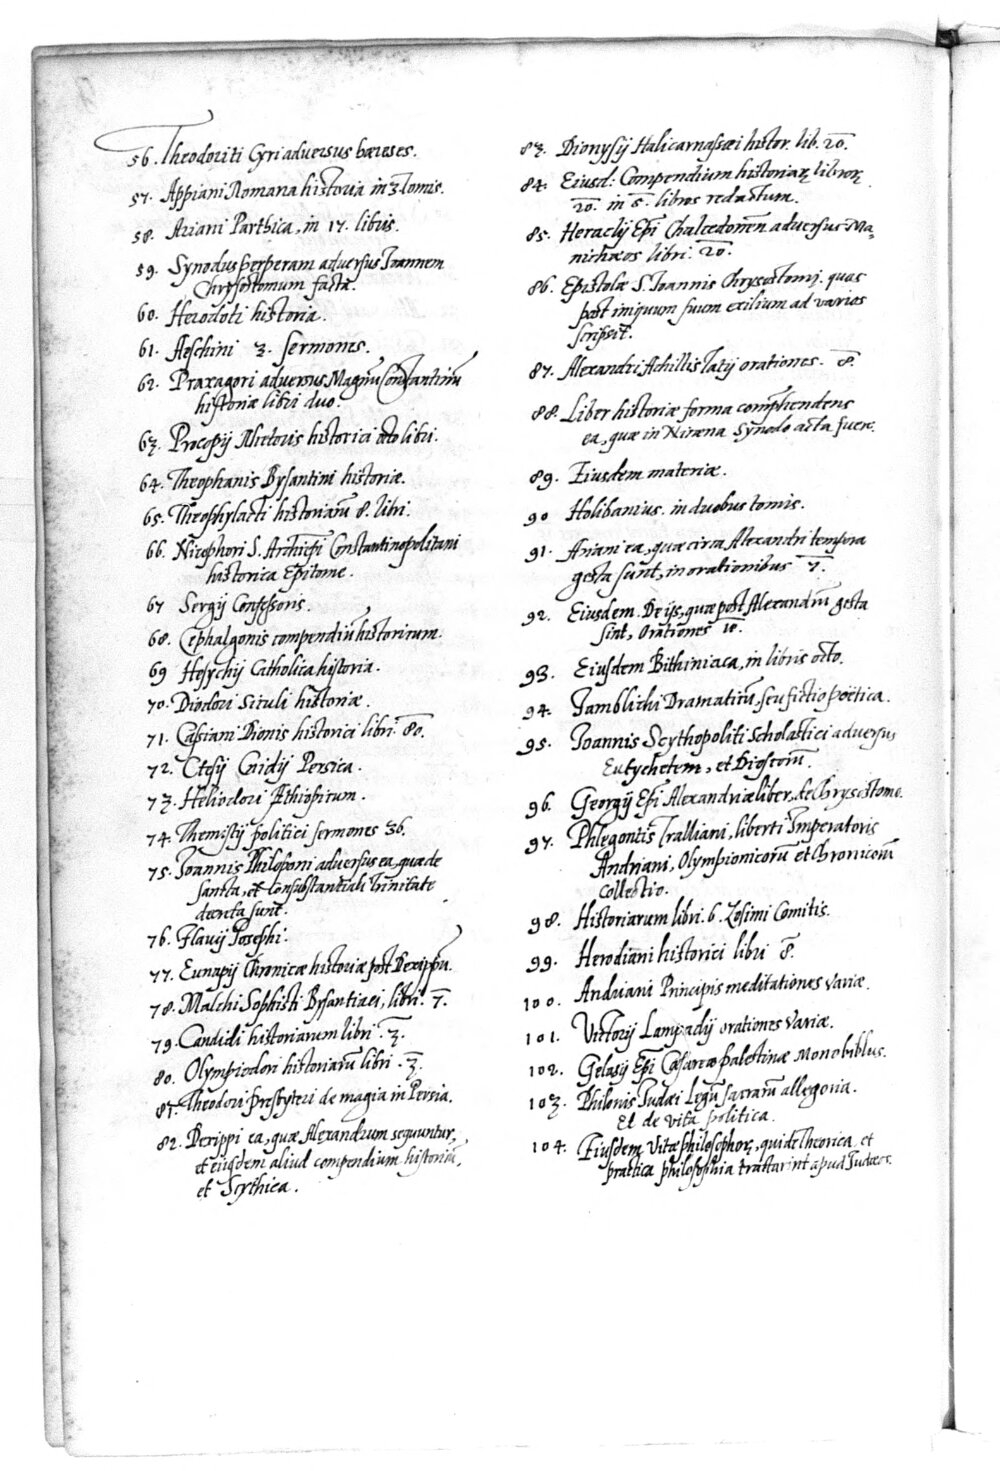 56. Theodoriti Cyri adversus hæreses.
57. Appiani Romana historia in 3 tomis.
58. Ariani Parthica, in 17. libris.
59. Synodus perperam adversus Joannem
Chrysostomum facta.
60. Herodoti historia.
61. Aeschini 3. sermones.
62. Praxagori adversus Magnũ Constantinũ
historiæ libri duo.
63. Procopij Rhetoris historici octo libri.
64. Theophanis Bysantini historiæ.
65. Theophylacti historiarũ 8. libri.
66. Nicephori S. Archiepi Constantinopolitani
historica Epitome.
67 Sergij Confessoris.
68. Cephalgonis compendiũ historicum.
69 Hesychij Catholica historia.
70. Diodori Siculi historiæ.
71. Cassiani Dionis historici libri. 80.
72. Ctesij Cnidij Persica.
73. Heliodori Æthiopicum.
74. Themistij politici sermones 36.
75. Joannis Philoponi adversus ea, quæ de
sancta, et Consubstantiali Trinitate
decreta sunt.
76. Flavij Josephi.
77. Eunapij Chronicæ historiæ post Dexippũ.
78. Malchi Sophisti Bysantiaei, libri. 7.
79. Candidi historiarum libri. 3.
80. Olympiodori historiarũ libri. 3.
81. Theodori presbyteri de magia in Persia.
82. Dexippi ea, quæ Alexandrum sequuntur,
et eiusdem aliud compendium historiũ,
et Scythica.
83. Dionysij Halicarnassæi histor. lib. 20.
84. Eiusd: Compendium historiaꝝ libroꝝ
20. in 5. libros redactum.
85. Heraclij Epi Chalcedonẽn adversus Ma=
nichæos libri. 20.
86. Epistolæ S. Joannis Chrysostomi, quas
post iniquum suum exilium ad varios
scripsit.
87. Alexandri Achillis Tatij orationes. 8.
88. Liber historiæ forma comprehendens
ea, quæ in Nicæna Synodo acta fuere.
89. Eiusdem materiæ.
90 Holibanius. in duobus tomis.
91. Ariani ea, quæ circa Alexandri tempora
gesta sunt, in orationibus 7.
92. Eiusdem. De ijs, quæ post Alexandrũ gesta
sint, orationes 10.
93. Eiusdem Bithiniaca, in libris octo.
94. Jamblichi Dramaticũ, seu fictio poëtica.
95. Joannis Scythopoliti Scholastici adversus
Eutychetem, et Dioscorũ.
96. Georgij Epi Alexandriæ liber, de Chrysostomo.
97. Phlegontis Tralliani, liberti Imperatoris
Andriani, Olympionicorũ et Chronicorũ
collectio.
98. Historiarum libri. 6. Zosimi Comitis.
99. Herodiani historici libri 8.
100. Andriani Principis meditationes variæ.
101. Victorij Lampadij orationes variæ.
102. Gelasij Epi Cæsareæ palestinæ Monobiblus.
103. Philonis Judæi Legũ sacrarũ allegoria.
Et de vita politica.
104. Eiusdem, Vitæ philosophoꝝ, qui de Theorica, et
practica philosophia tractarint apud Judæos.